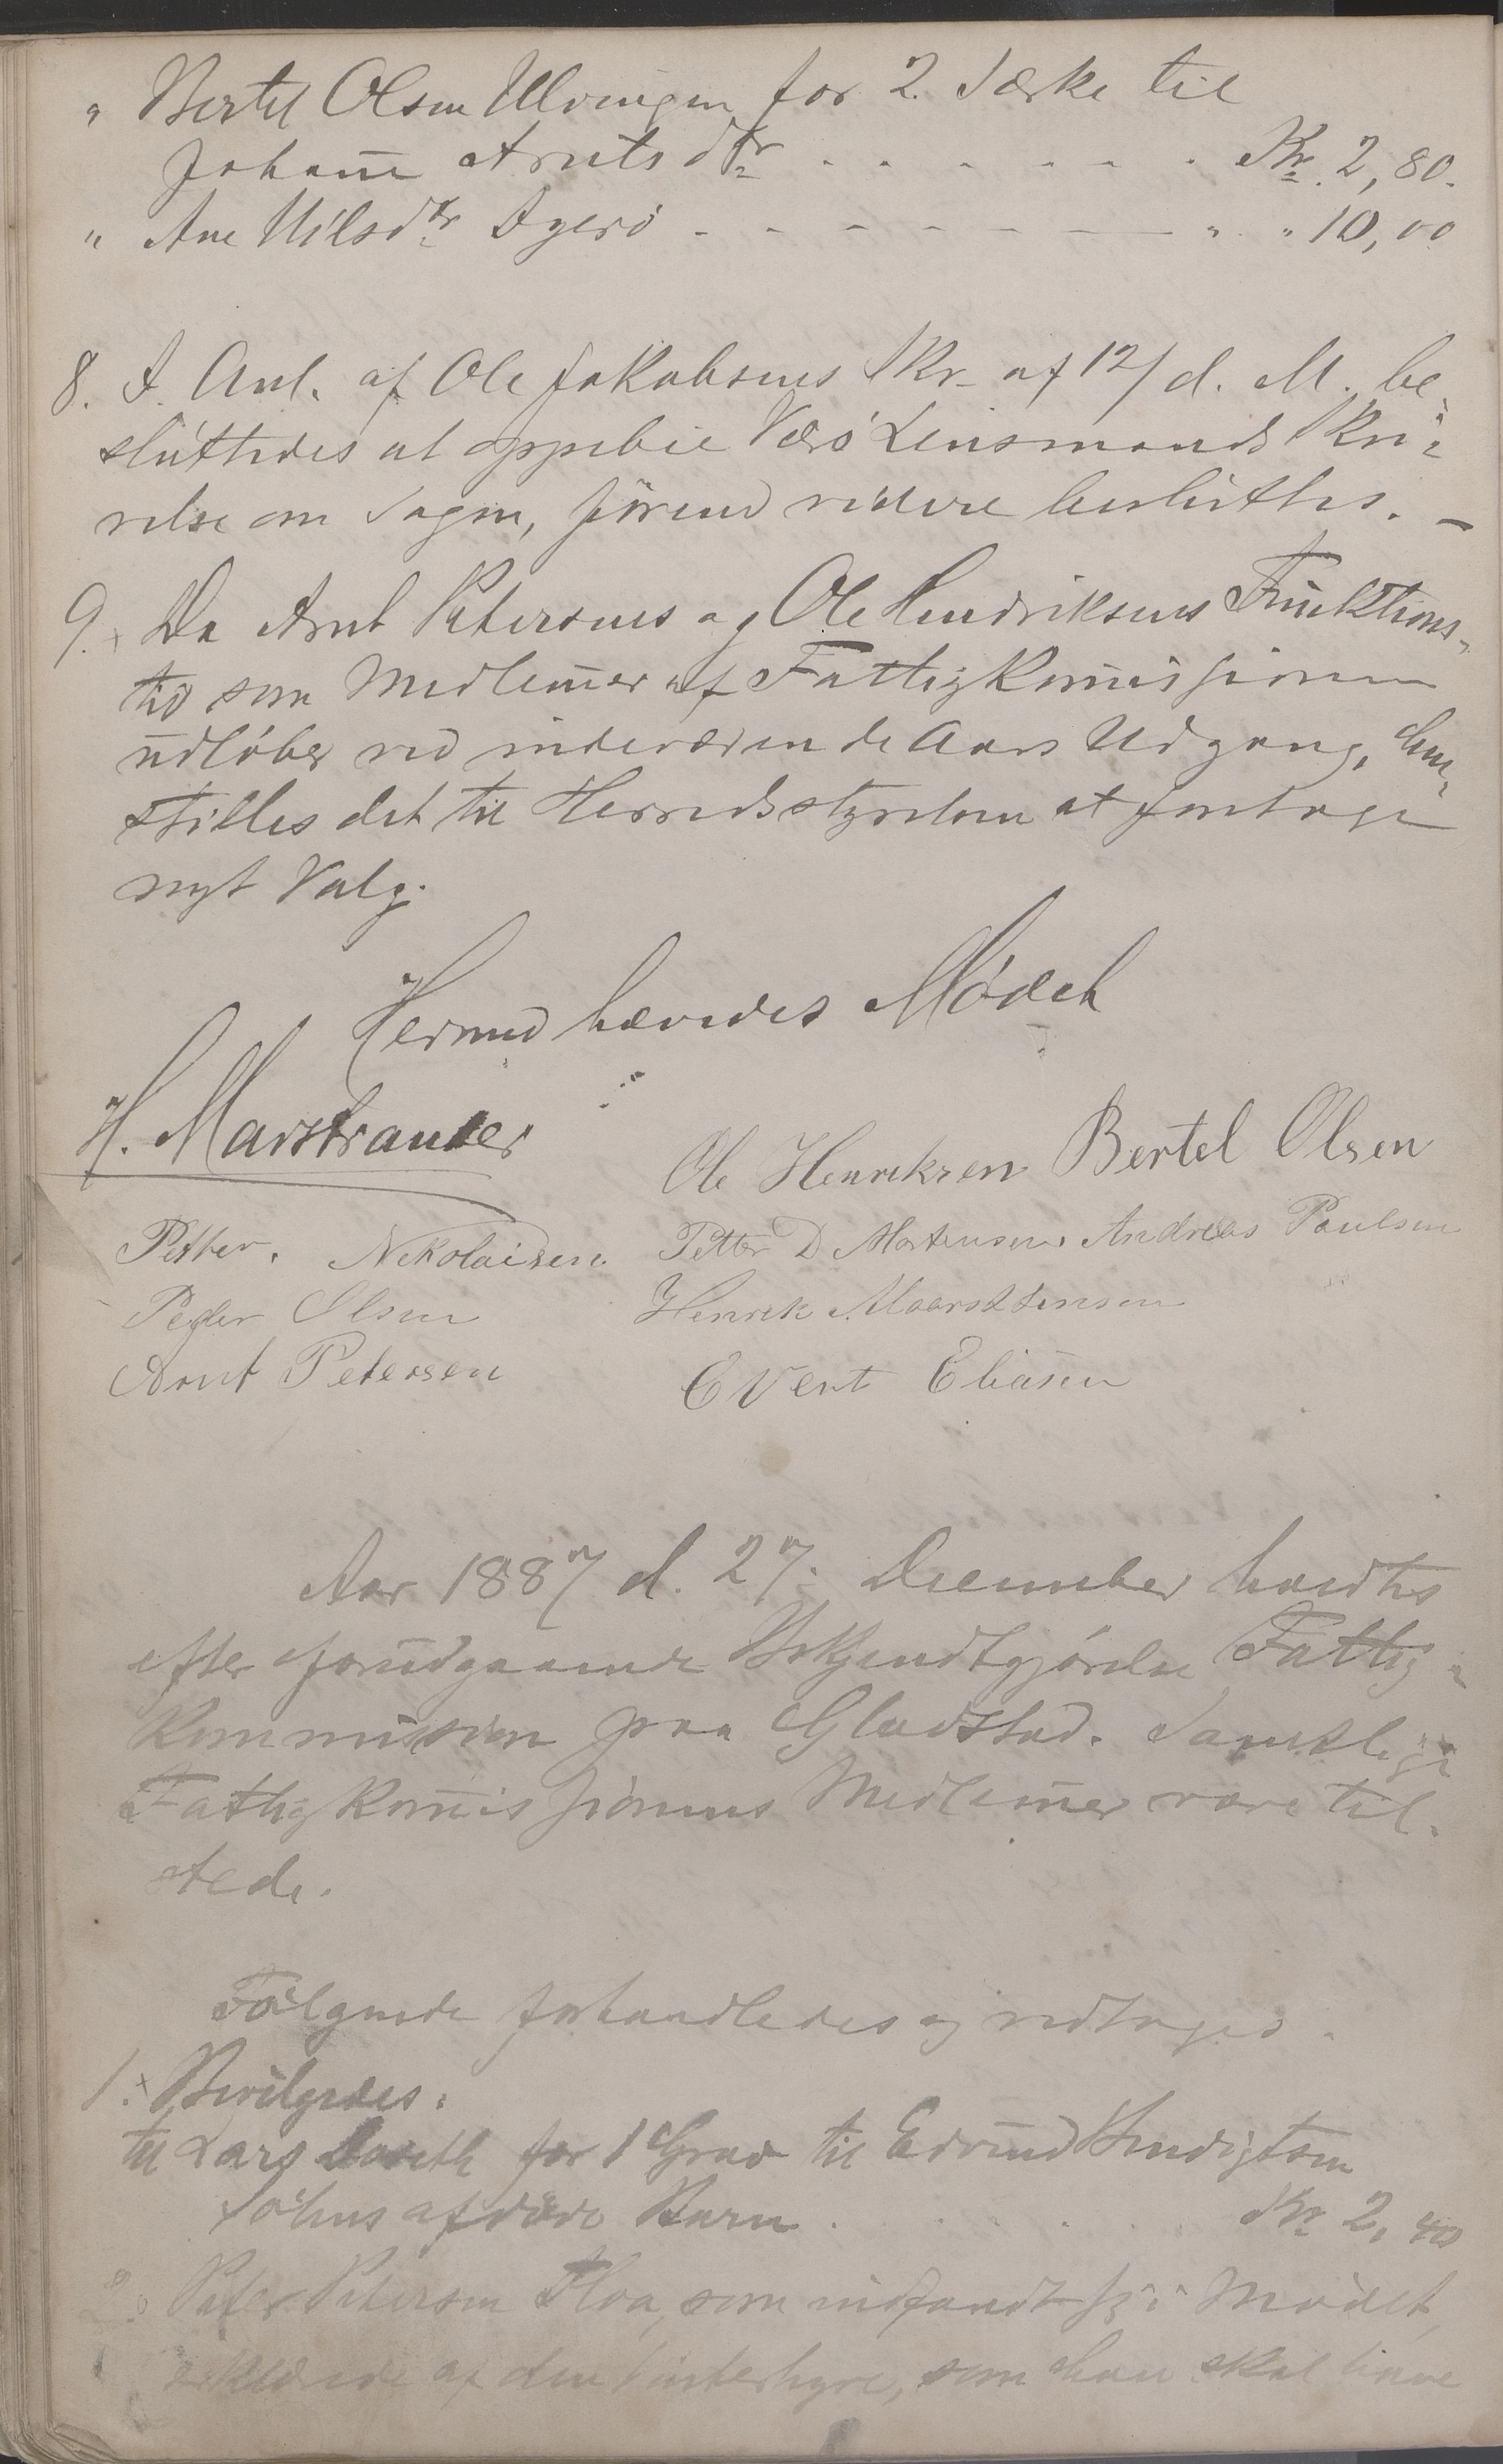 " Bertel Olsen Ulvingen for 2 Særke til
Johan̄e Arntsdtr - - - - - - Kr. 2,80.
" Ane Nilsdtr Dyerö - - - - - - " " 10,00
8. I Anl. af Ole Jakobsens Skr. af 12/ d. M. be-
sluttedes at oppebie Verö Lensmands Skri-
velse om Sagen, förend videre besluttes. -
9. x Da Arnt Petersens og Ole Hendriksens Funktions-
tid som Medlem̄er af Fattigkom̄issionen
udløber ved indeværende Aars Udgang, hen-
stilles det til Herredsstyrelsen at foretage
nyt Valg.
Hermed hævedes Mødet
H. Marstrander
Ole Henriksen Bertel Olsen
Petter. Nekolaisen. Petter D Mortensen. Andreas Paulsen
Peder Olsen Henrik Maarstensen
Arnt Petersen Evert Eliasen
Aar 1887 d. 27. December holdtes
efter forudgaaende Bekjendtgjørelse Fattig-
kommission paa Gladstad. Samtlige
Fattigkom̄issionens Medlem̄er vare til-
stede.
Følgende forhandledes og vedtoges.
1. x Bevilgedes:
til Lars for 1 Grav til Edvind Hendigtsen
Söhns afdøde Barn . . . . . Kr 2,40
2. Peter Petersen Floa, som indfandt sig i Mødet,
erklærede af den Vinterhyre, som han skal have